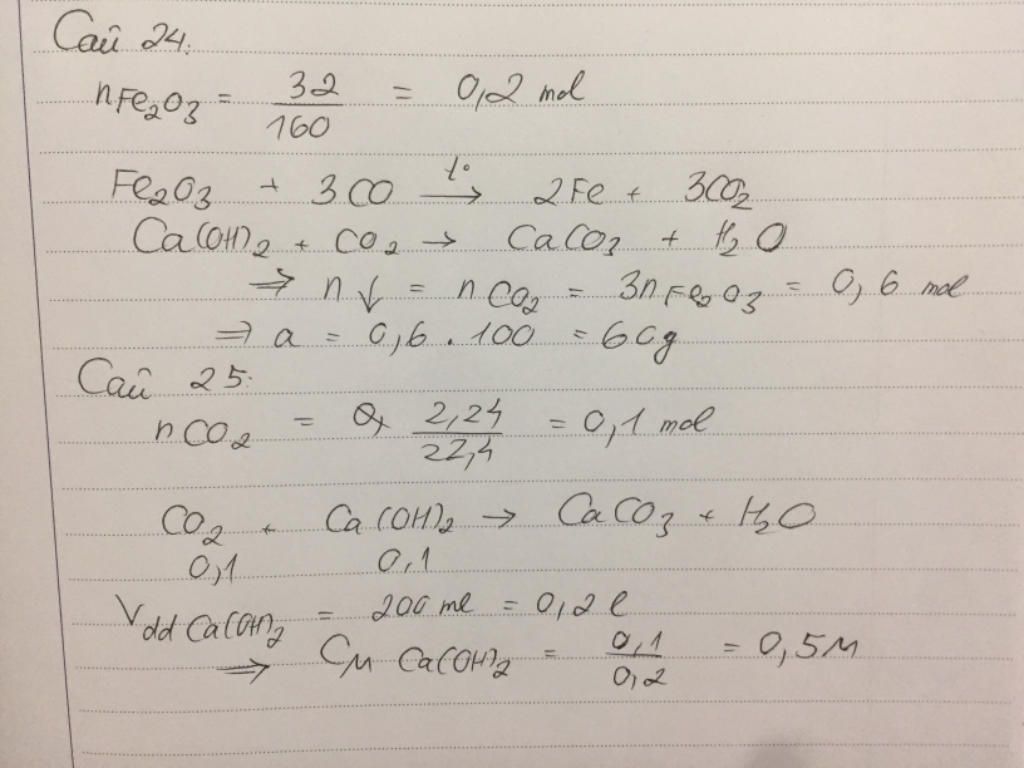 Câu 24:
nFe₂O₃ = 32/160 = 0,2 mol
Fe₂O₃ + 3CO →(t°) 2Fe + 3CO₂
Ca(OH)₂ + CO₂ → CaCO₃ + H₂O
⇒ n↓ = nCO₂ = 3nFe₂O₃ = 0,6 mol
⇒ a = 0,6 . 100 = 60g
Câu 25:
nCO₂ = 2,24/22,4 = 0,1 mol
CO₂ + Ca(OH)₂ → CaCO₃ + H₂O
0,1 0,1
Vdd Ca(OH)₂ = 200 ml = 0,2 l
⇒ CM Ca(OH)₂ = 0,1/0,2 = 0,5M